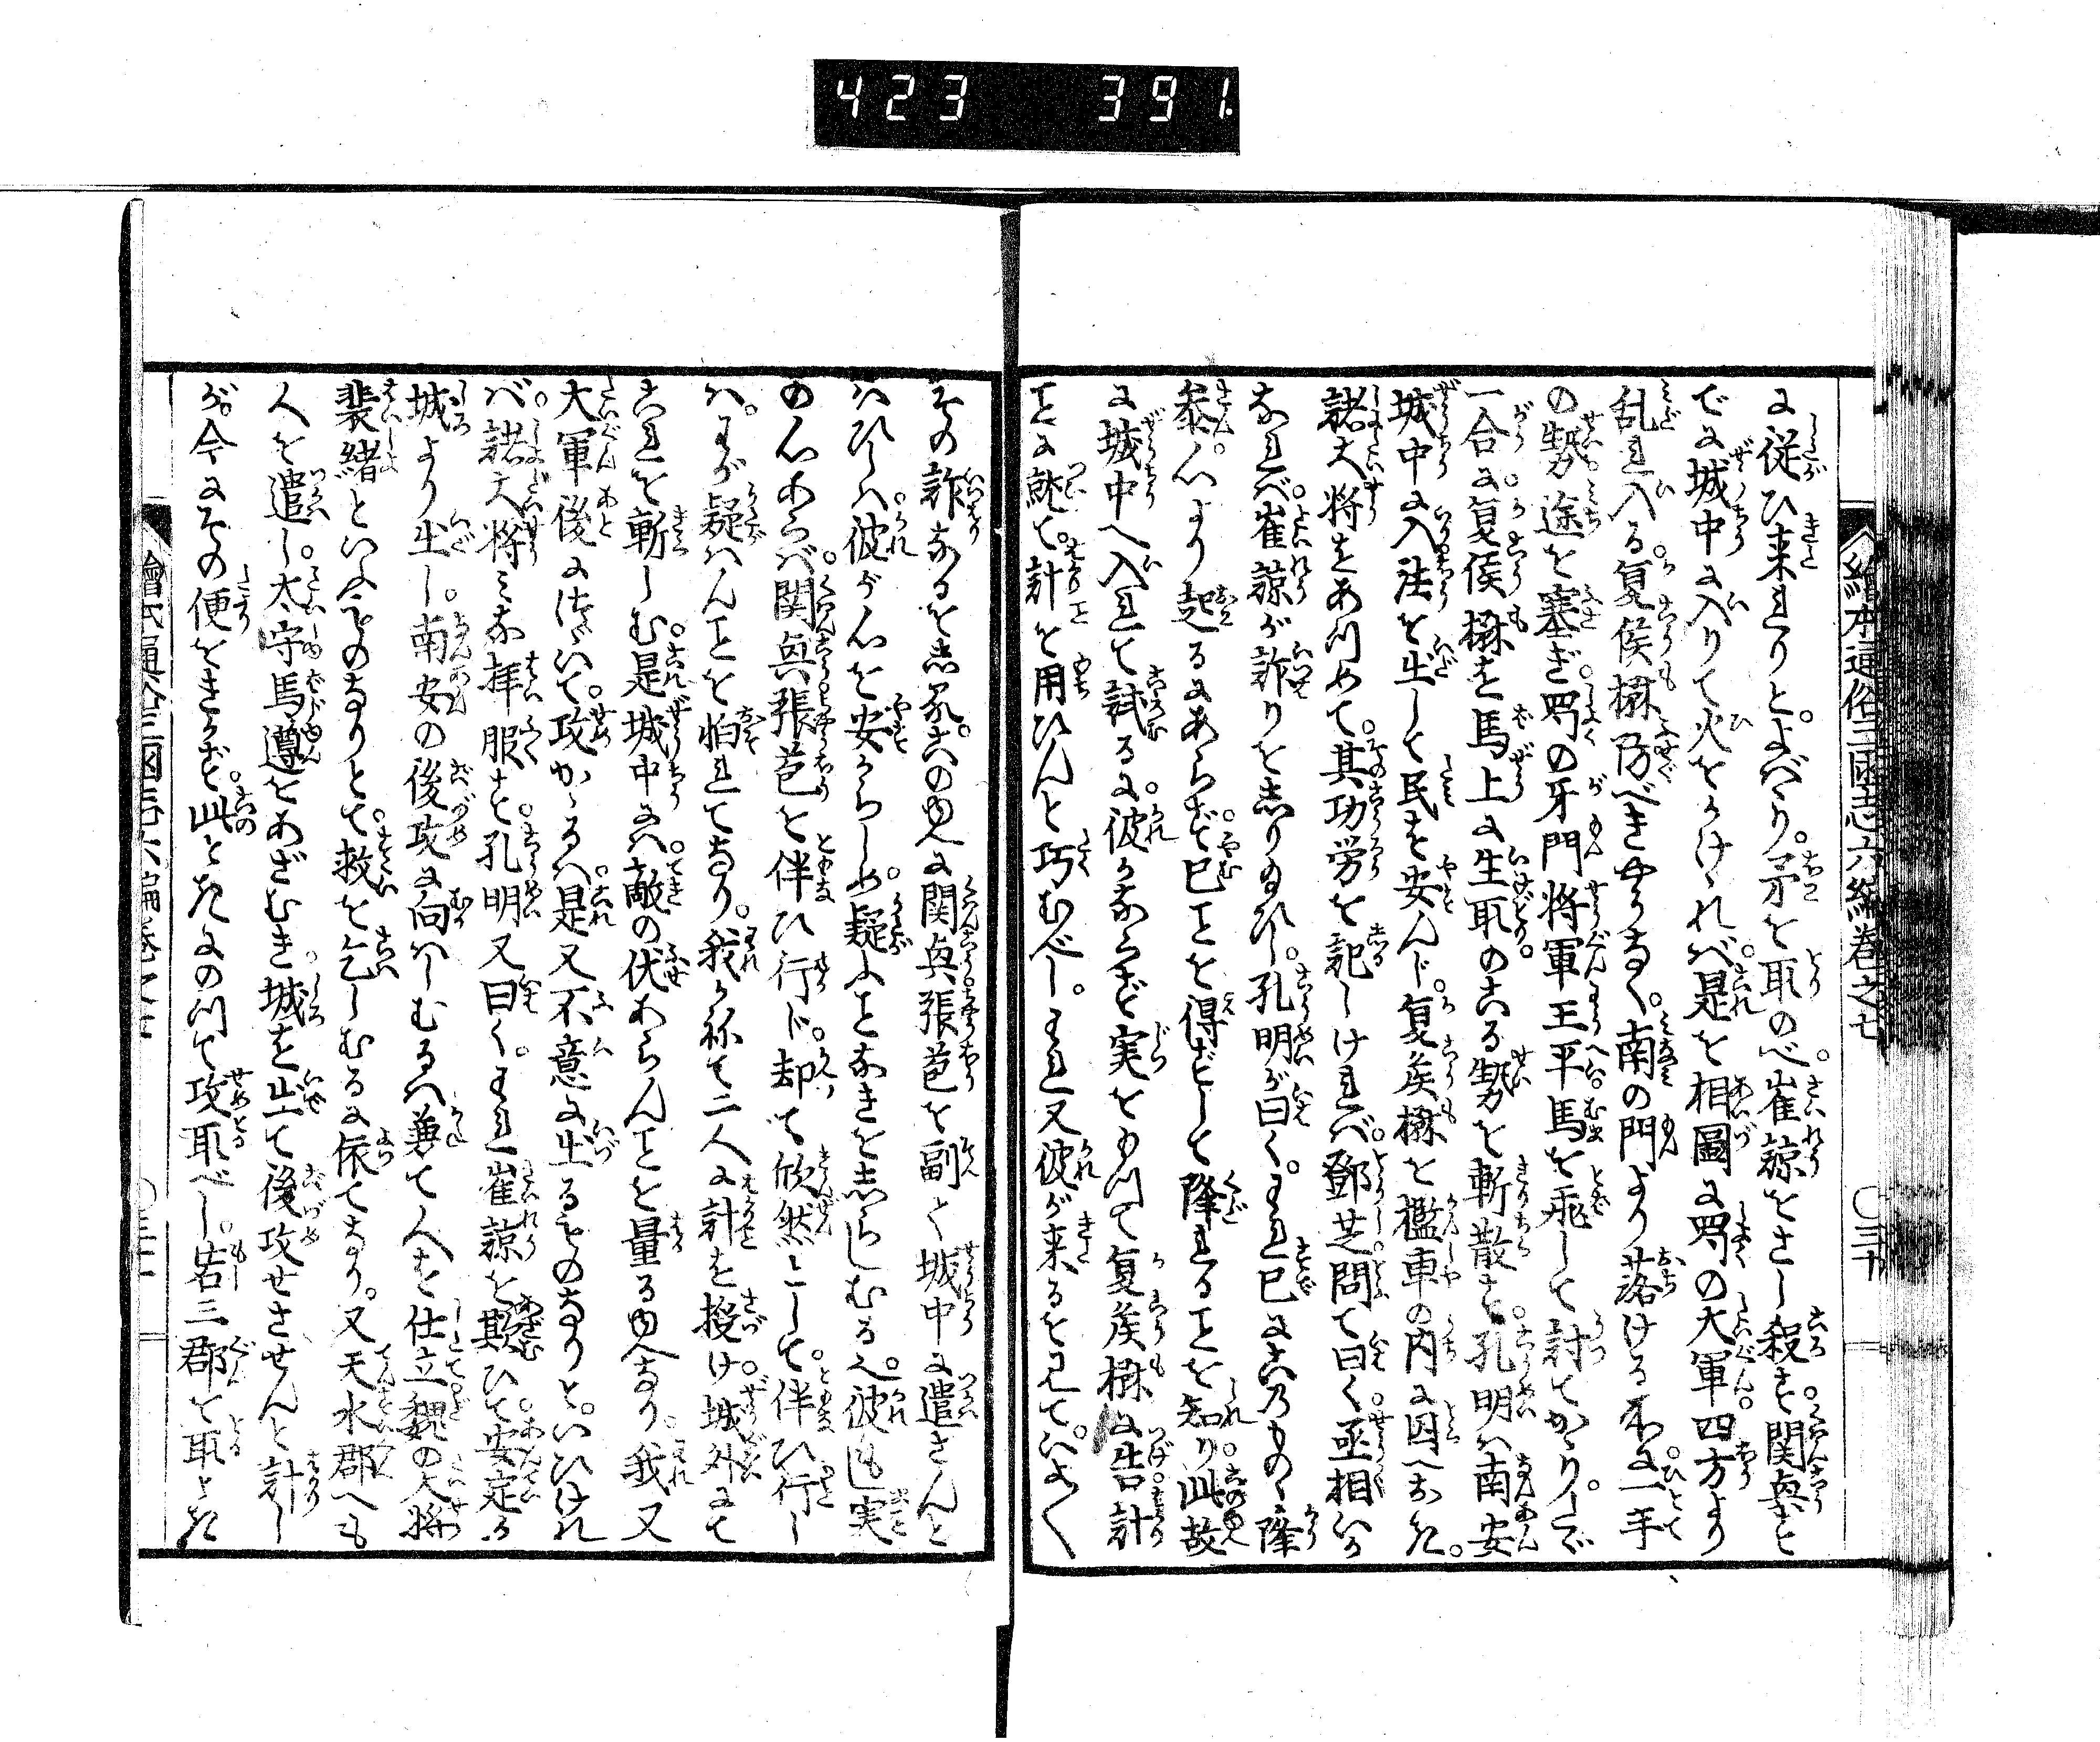 423 391
繪本通俗三國志六編卷之七
○三十
に従ひ来れりと。よばゝり。矛を取のべ。崔諒をさし殺す。関興す
でに城中に入りて火をかけゝれバ。是を相圖に蜀の大軍四方より
乱れ入る。夏侯楙防べきやうなく。南の門より落ける所に。一手
の勢途を塞ぎ。蜀の牙門将軍王平馬を飛して討てかゝり。たゞ
一合に夏侯楙を馬上に生取のこる勢を斬散す。孔明ハ南安
城中に入法を出して民を安んじ。夏侯楙を檻車の内に囚へおき。
諸大将をあつめて。其功労を記しけれバ。鄧芝問て曰く。丞相いか
なれバ。崔諒が詐りをしり給ひし。孔明が曰く。われ已にこのものゝ降
参。心より起るにあらず。已ことを得ずして降れることを知り。此故
に城中へ入れて試るに。彼かならず実をもつて夏侯楙に告計
ことに就て。計を用ひんと巧むべし。われ又彼が来るを見て。いよ〱
その詐なるを志る。この由へに関興張苞を副て城中に遣さんと
いひしハ。彼が心を安からしめ。疑ふことなきを志らしむる也。彼もし実
の心あらバ。関興張苞を伴ひ行じ。却て欣然として。伴ひ行し
ハ。わが疑ハんことを怕れてなり。我かねて二人に計を授け。城外にて
これを斬しむ。是城中にハ。敵の伏あらんことを量る由へなり。我又
大軍後につゞいて。攻かゝるハ。是又不意に出るものなりと。いひけれ
バ。諸大将みな拝服す。孔明又曰く。われ崔諒を欺ひて。安定の
城より出し。南安の後攻に向ハしむるハ。兼て人を仕立。魏の大将
裴緒といふものなりとて。救を乞しむるに依てなり。又天水郡へも
人を遣し。太守馬遵をあざむき。城を出て後攻せさせんと計し
が。今にその便をきかず。此ときにのつて攻取べし。若三郡を取とき